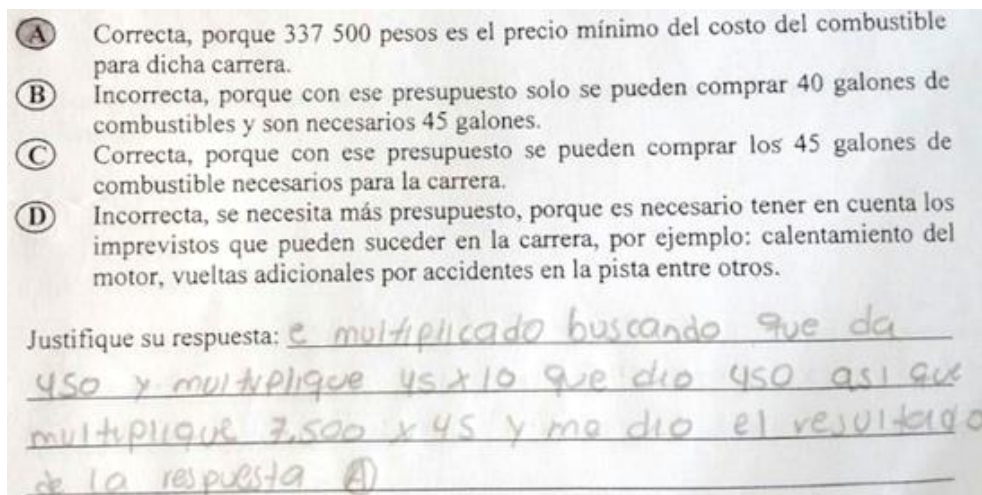 A Correcta, porque 337 500 pesos es el precio mínimo del costo del combustible
para dicha carrera.
B Incorrecta, porque con ese presupuesto solo se pueden comprar 40 galones de
combustibles y son necesarios 45 galones.
C Correcta, porque con ese presupuesto se pueden comprar los 45 galones de
combustible necesarios para la carrera.
D Incorrecta, se necesita más presupuesto, porque es necesario tener en cuenta los
imprevistos que pueden suceder en la carrera, por ejemplo: calentamiento del
motor, vueltas adicionales por accidentes en la pista entre otros.
Justifique su respuesta: e multiplicado buscando que da
450 y multiplique 45 x 10 que dio 450 asi que
multiplique 7.500 x 45 y me dio el resultado
de la respuesta A